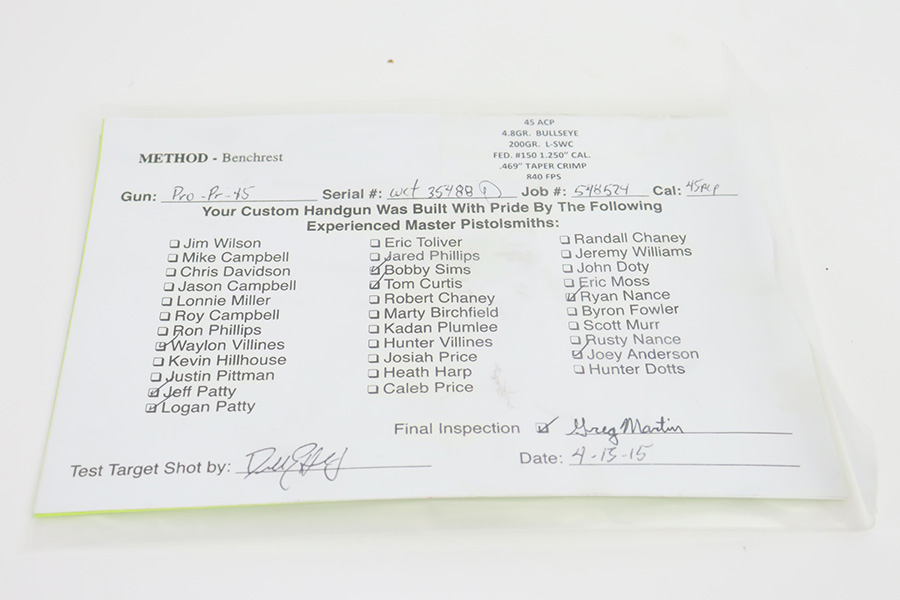 45 ACP
4.8GR. BULLSEYE
200GR. L-SWC
FED. #150 1.250" CAL.
.469" TAPER CRIMP
840 FPS
METHOD - Benchrest
Gun: Pro-Pr-45 Serial #: WCT 35488 Job #: 548524 Cal: 45ACP
Your Custom Handgun Was Built With Pride By The Following
Experienced Master Pistolsmiths:
Jim Wilson
Mike Campbell
Chris Davidson
Jason Campbell
Lonnie Miller
Roy Campbell
Ron Phillips
Waylon Villines
Kevin Hillhouse
Justin Pittman
Jeff Patty
Logan Patty
Eric Toliver
Jared Phillips
Bobby Sims
Tom Curtis
Robert Chaney
Marty Birchfield
Kadan Plumlee
Hunter Villines
Josiah Price
Heath Harp
Caleb Price
Randall Chaney
Jeremy Williams
John Doty
Eric Moss
Ryan Nance
Byron Fowler
Scott Murr
Rusty Nance
Joey Anderson
Hunter Dotts
Final Inspection Greg Martin
Test Target Shot by:
Date: 4-13-15